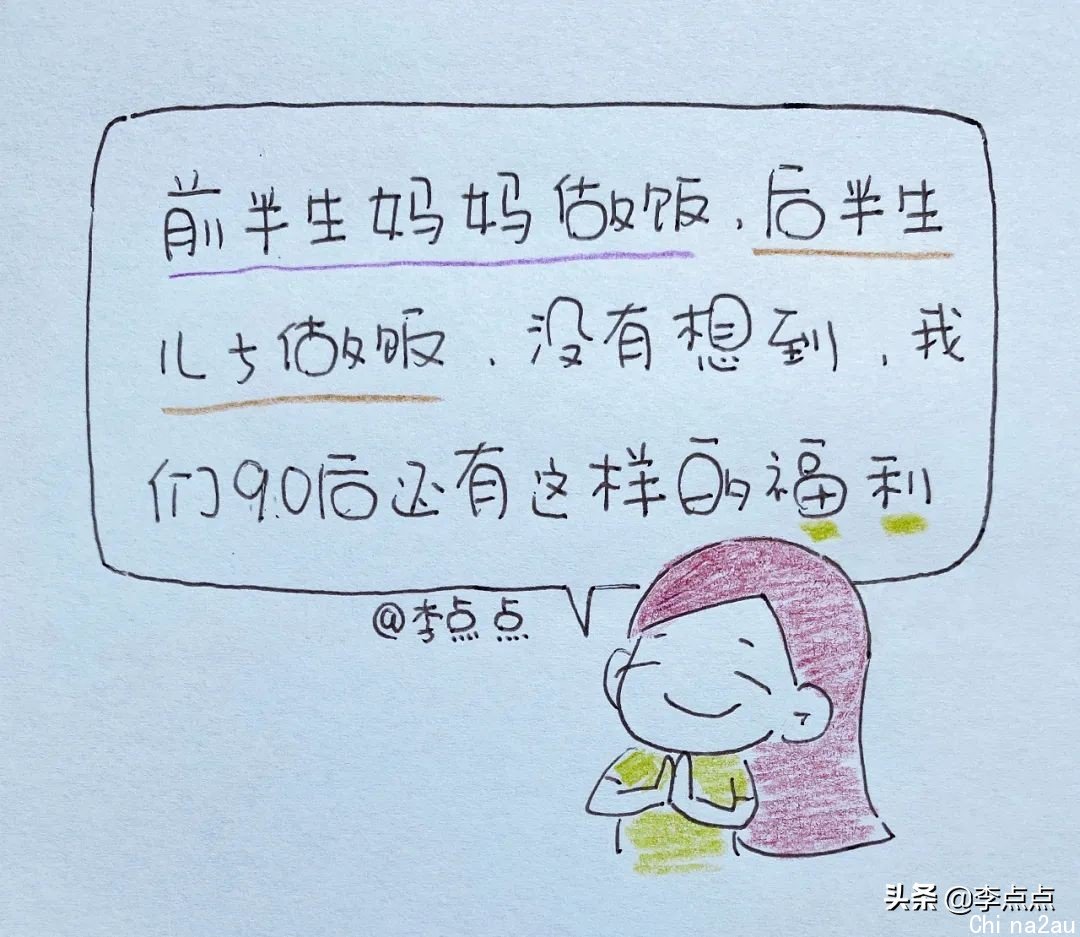 前半生妈妈做饭，后半生
儿子做饭，没有想到，我
们90后还有这样的福利
@李点点
头条 @李点点
Chi na2au